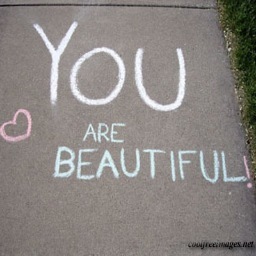 YOU
ARE
BEAUTIFUL!
coolfreeimages.net